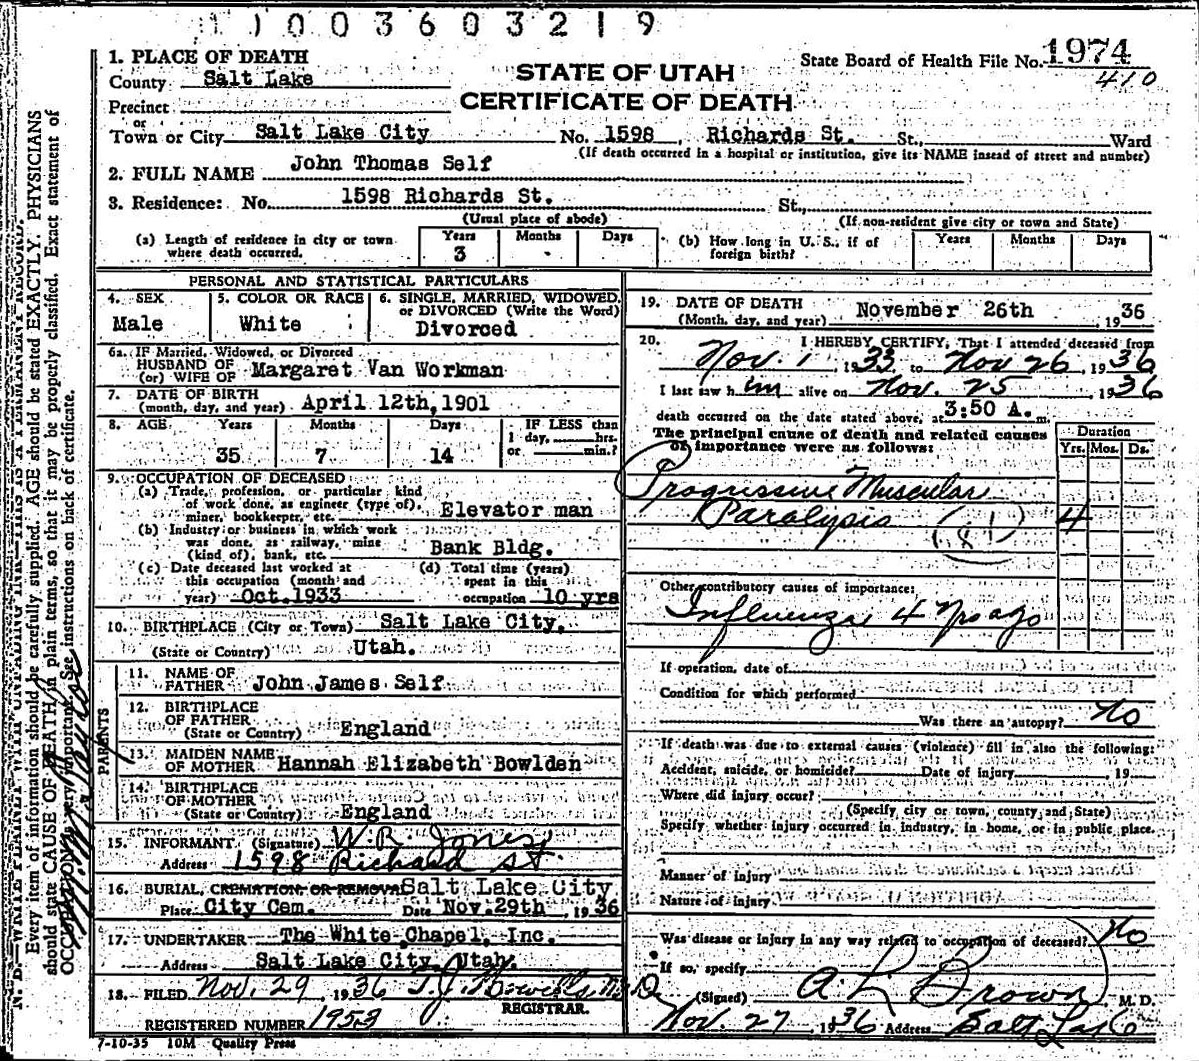 1003603219
1. PLACE OF DEATH
County Salt Lake
STATE OF UTAH
State Board of Health File No. 1974
410
CERTIFICATE OF DEATH
Precinct
or
Town or City Salt Lake City No. 1598, Richards St. St., Ward
(If death occurred in a hospital or institution, give its NAME insead of street and number)
2. FULL NAME John Thomas Self
3. Residence: No. 1598 Richards St. St.,
(Usual place of abode) (If non-resident give city or town and State)
(a) Length of residence in city or town where death occurred. Years 3 Months Days
(b) How long in U. S., if of foreign birth? Years Months Days
PERSONAL AND STATISTICAL PARTICULARS
4. SEX Male
5. COLOR OR RACE White
6. SINGLE, MARRIED, WIDOWED, or DIVORCED (Write the Word) Divorced
6a. IF Married, Widowed, or Divorced
HUSBAND OF
(or) WIFE OF Margaret Van Workman
7. DATE OF BIRTH
(month, day, and year) April 12th, 1901
8. AGE Years 35 Months 7 Days 14 IF LESS than 1 day, hrs. or min.?
9. OCCUPATION OF DECEASED
(a) Trade, profession, or particular kind
of work done, as engineer (type of),
miner, bookkeeper, etc. Elevator man
(b) Industry or business in which work
was done, as railway, mine
(kind of), bank, etc. Bank Bldg.
(c) Date deceased last worked at
this occupation (month and
year) Oct. 1933
(d) Total time (years)
spent in this
occupation 10 yrs
10. BIRTHPLACE (City or Town) Salt Lake City,
(State or Country) Utah.
PARENTS
11. NAME OF
FATHER John James Self
12. BIRTHPLACE
OF FATHER
(State or Country) England
13. MAIDEN NAME
OF MOTHER Hannah Elizabeth Bowlden
14. BIRTHPLACE
OF MOTHER
(State or Country) England
15. INFORMANT (Signature) W. R. Jones
Address 1598 Richard St.
16. BURIAL, CREMATION OR REMOVAL Salt Lake City
Place City Cem. Date Nov. 29th, 1936
17. UNDERTAKER The White Chapel, Inc.
Address Salt Lake City, Utah.
18. FILED Nov. 29, 1936 T. J. Howells M D
REGISTRAR.
REGISTERED NUMBER 1953
7-10-35 10M Quality Press
19. DATE OF DEATH
(Month, day, and year) November 26th 1936
20. I HEREBY CERTIFY, That I attended deceased from
Nov. 1, 1933 to Nov 26, 1936
I last saw him alive on Nov. 25, 1936
death occurred on the date stated above, at 3:50 A. m.
The principal cause of death and related causes
of importance were as follows:
Duration
Yrs. Mos. Ds.
Progressive Muscular
Paralysis (81) 4
Other contributory causes of importance:
Influenza 4 yrs ago
If operation, date of
Condition for which performed
Was there an autopsy? No
If death was due to external causes (violence) fill in also the following:
Accident, suicide, or homicide? Date of injury, 19
Where did injury occur?
(Specify city or town, county and State)
Specify whether injury occurred in industry, in home, or in public place.
Manner of injury
Nature of injury
Was disease or injury in any way related to occupation of deceased? No
If so, specify
(Signed) A. L. Brown M. D.
Nov. 27 1936 Address Salt Lake
Every item of information should be carefully supplied. AGE should be stated EXACTLY. PHYSICIANS
should state CAUSE OF DEATH in plain terms, so that it may be properly classified. Exact statement of
OCCUPATION is very important. See instructions on back of certificate.